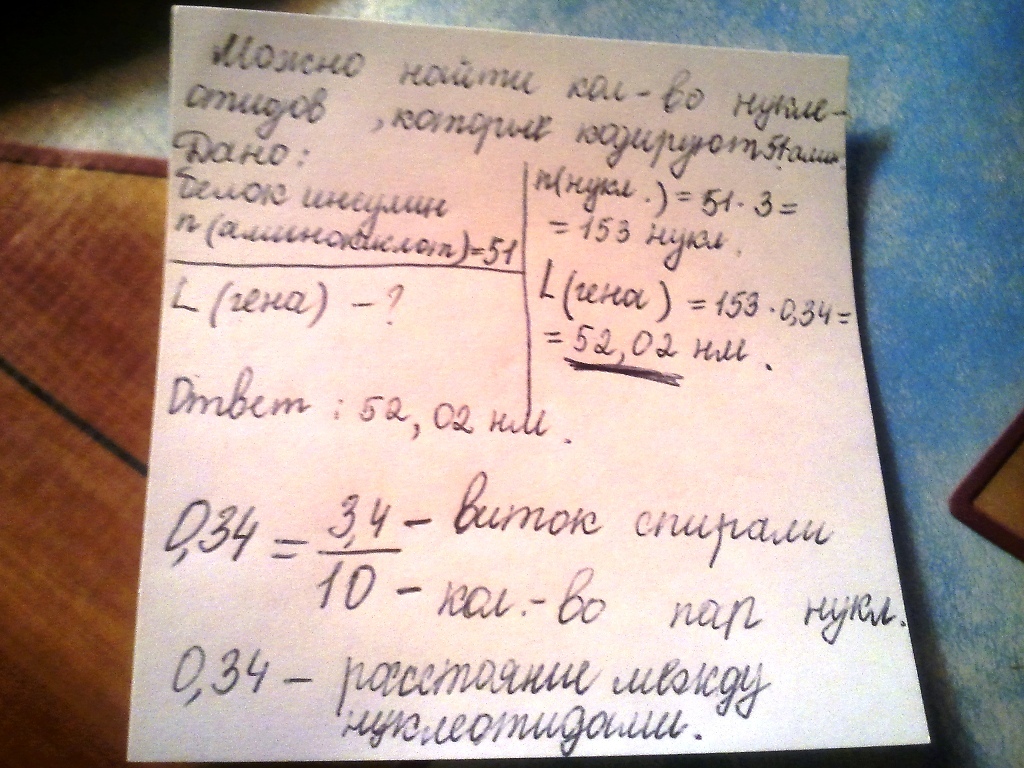 Можно найти кол-во нукле-
отидов, которые кодируют 51 амин.
Дано:
белок инсулин
n(аминокислот)=51
L (гена) - ?
n(нукл.) = 51 · 3 =
= 153 нукл.
L (гена) = 153 · 0,34 =
= 52,02 нм.
Ответ : 52, 02 нм.
0,34 = 3,4 - виток спирали
10 - кол.-во пар нукл.
0,34 - расстояние между
нуклеотидами.